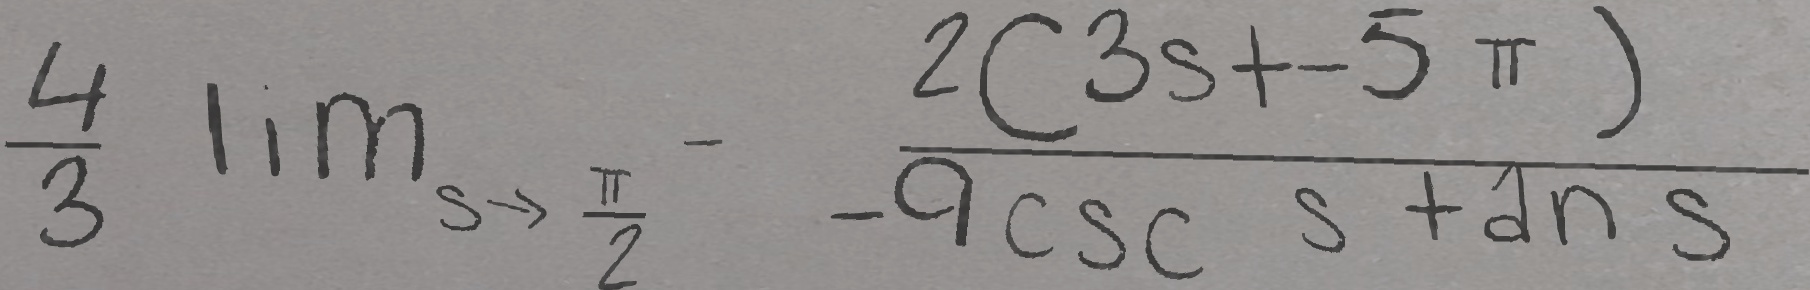 \frac{4}{3} \lim_{s \to \frac{\pi}{2}^-} \frac{2(3s+-5\pi)}{-9\csc s \tan s}